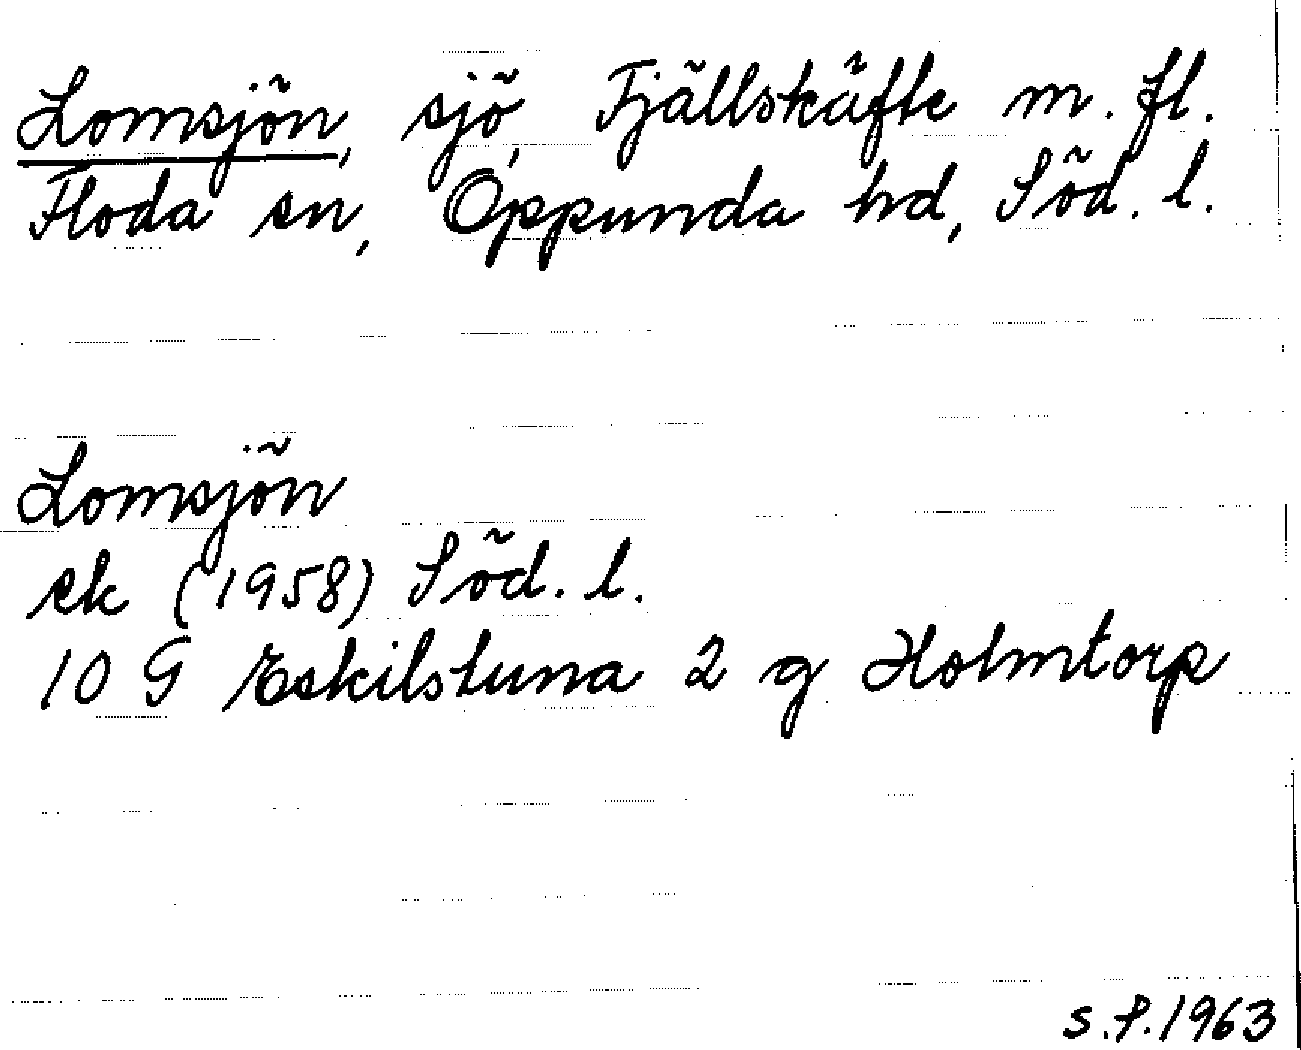 Lomsjön, sjö, Fjällskäfte m. fl.
Floda sn, Oppunda hd, Söd. l.
Lomsjön
ek (1958) Söd. l.
10 G Eskilstuna 2 g Holmtorp
S.P. 1963